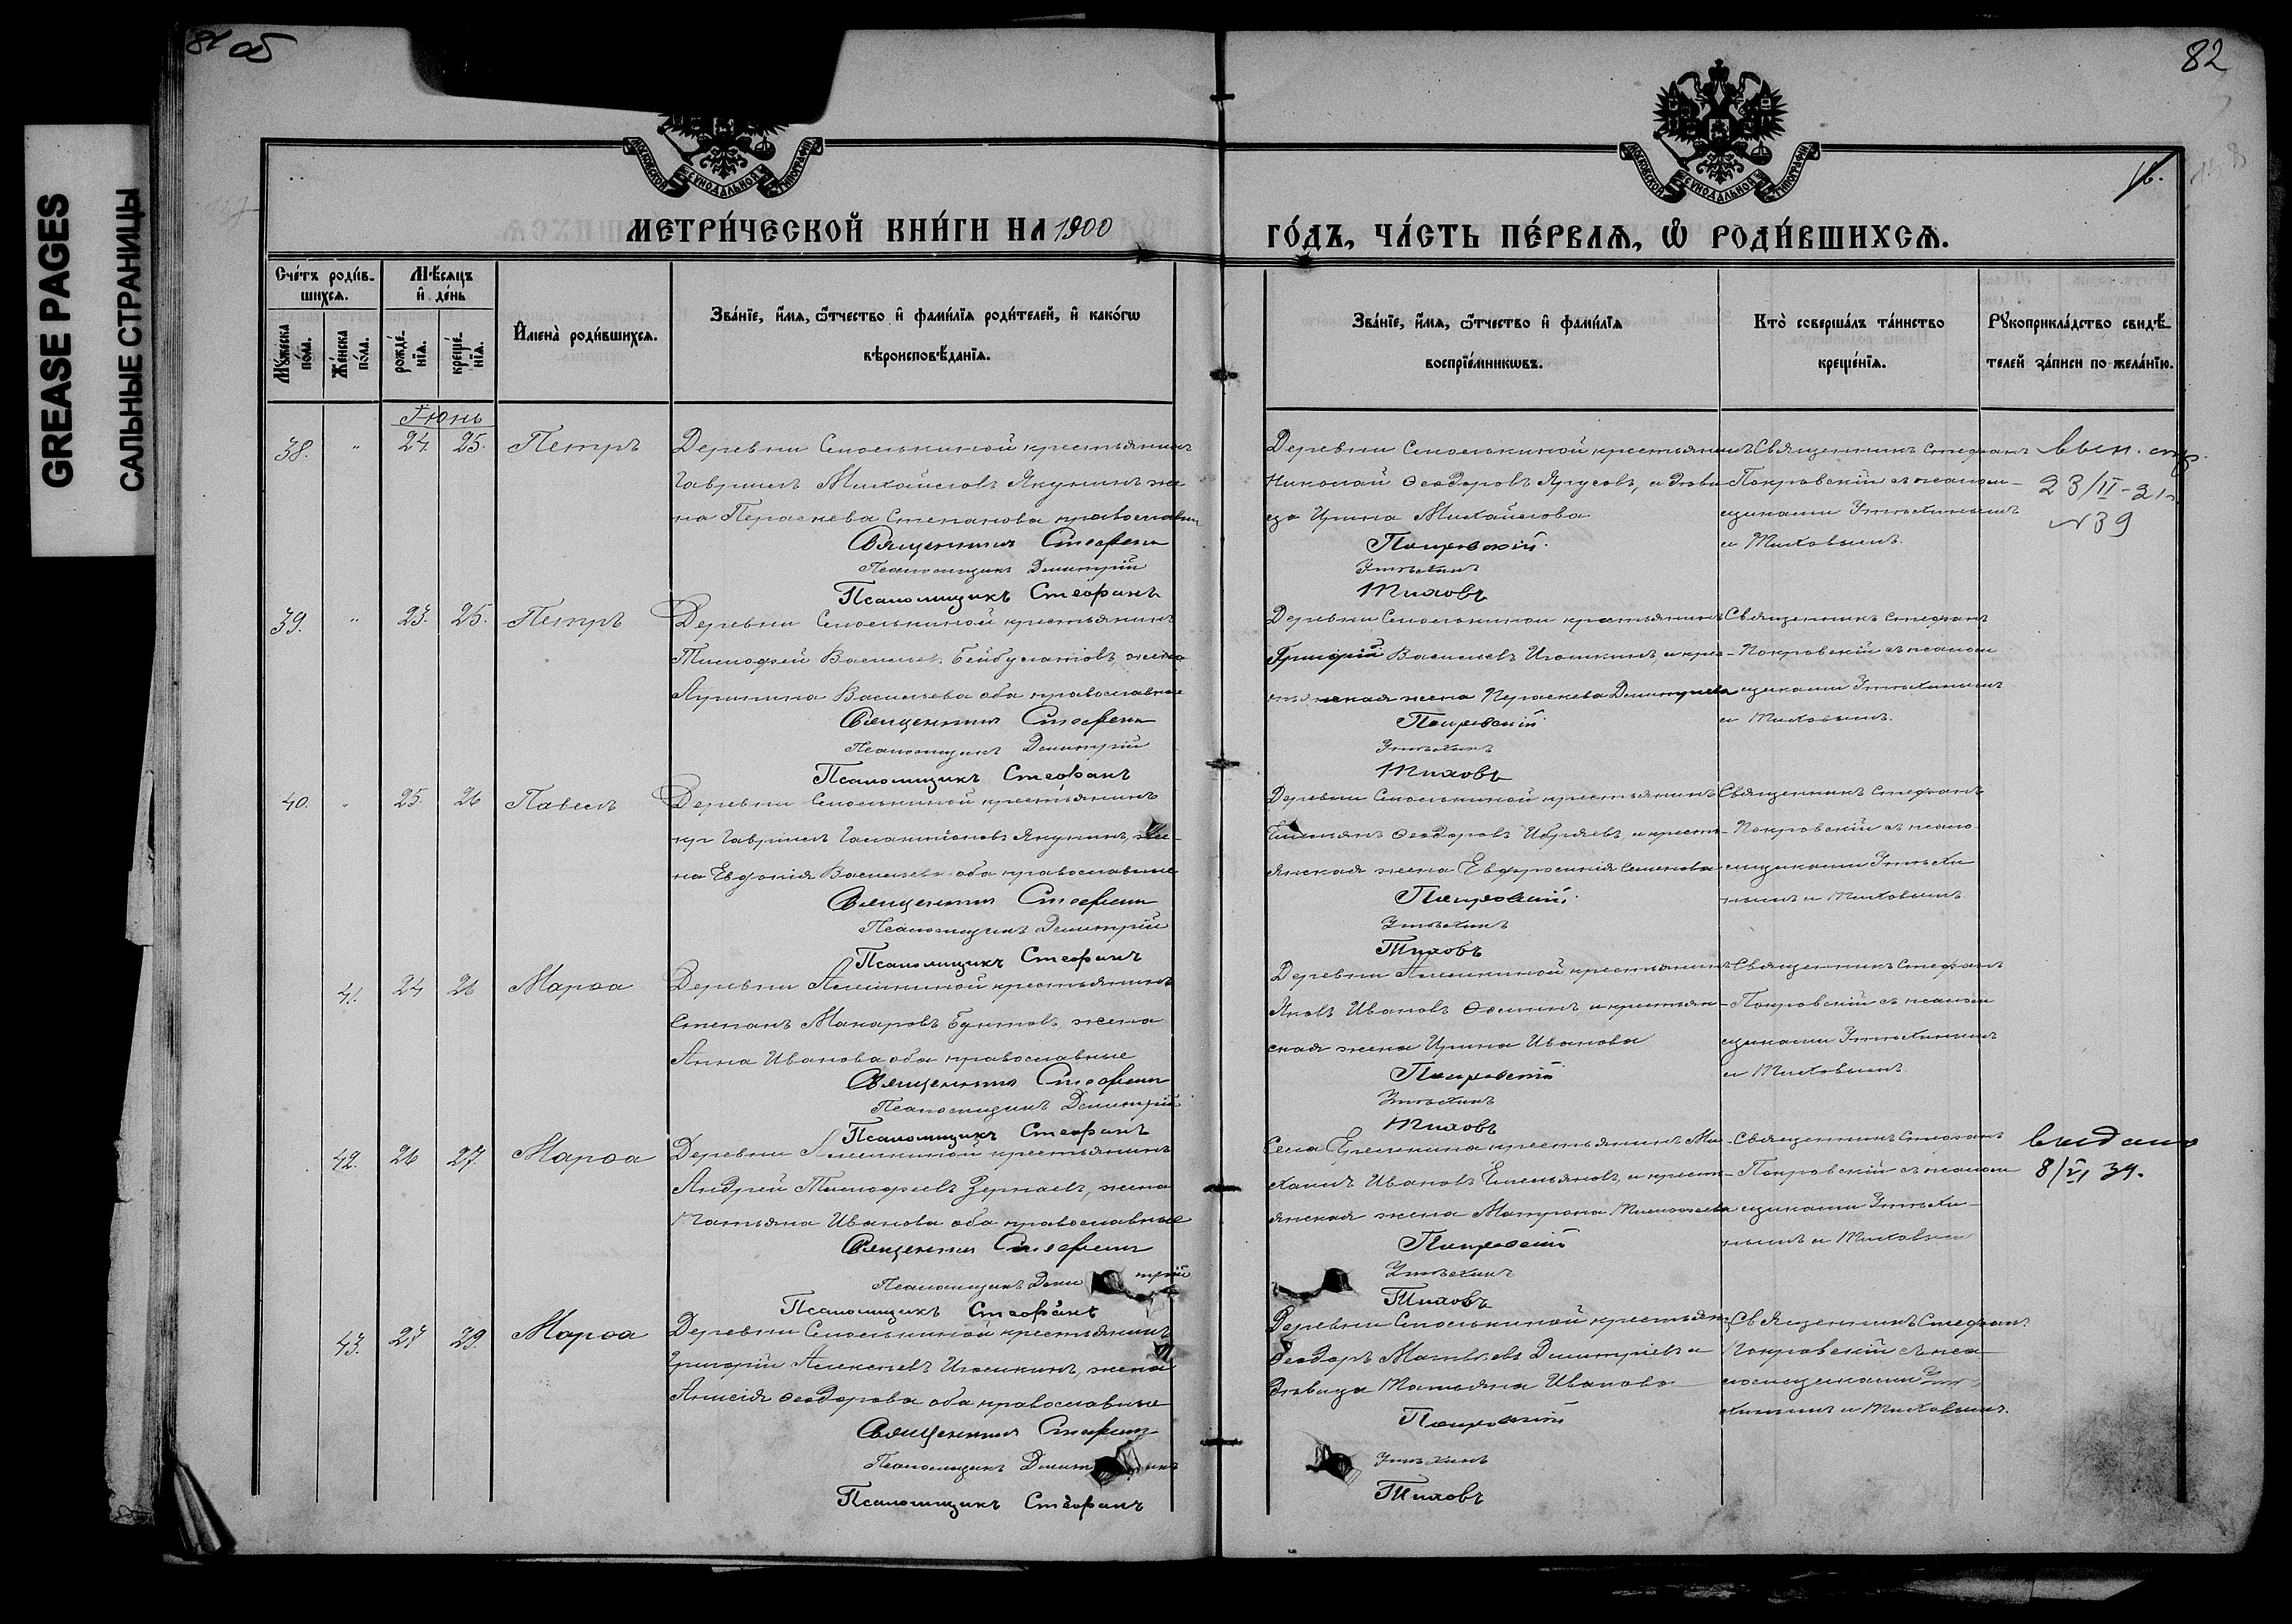 81 об
82
GREASE PAGES
САЛЬНЫЕ СТРАНИЦЫ
МОСКОВСКОЙ СУНОДАЛЬНОЙ ТИПОГРАФІИ
МОСКОВСКОЙ СУНОДАЛЬНОЙ ТИПОГРАФІИ
МЕТРИ́ЧЕСКОЙ КНИ́ГИ НА 1900
ГО́ДЪ, ЧА́СТЬ ПЕ́РВАЯ, Ѡ РОДИ́ВШИХСЯ.
Сче́тъ роди́в-
шихся.
Мѣ́сяцъ
и де́нь
Му́жеска по́ла.
Же́нска по́ла.
рожде́нїя.
креще́нїя.
Имена̀ роди́вшихся.
Зва́нїе, и́мя, ѻ́тчество и фами́лїя роди́телей, и како́гѡ
вѣроисповѣ́данїя.
Зва́нїе, и́мя, ѻ́тчество и фами́лїя
воспрїе́мникѡвъ.
Кто̀ соверша́лъ та́инство
креще́нїя.
Рꙋкоприкла́дство свидѣ́-
телей за́писи по жела́нїю.
Іюнь
38. " 24. 25. Петръ
Деревни Смолькиной крестьянинъ
Гавриилъ Михайловъ Якунинъ же
на Параскева Степанова православн
Священникъ Стефанъ
Псаломщикъ Димитрій
Псаломщикъ Стефанъ
Деревни Смолькиной крестьянинъ
Николай Ѳеодоровъ Ярусовъ, и дѣви
ца Ирина Михайлова
Покровскій
Утѣхинъ
Тиховъ
Священникъ Стефанъ
Покровскій съ псалом-
щиками Утѣхинымъ
и Тиховымъ.
23/II-21
№39
39. " 23. 25. Петръ
Деревни Смолькиной крестьянинъ
Тимофей Васильев. Бейбулатовъ, жена
Агрипина Васильева оба православные
Священникъ Стефанъ
Псаломщикъ Димитрій
Псаломщикъ Стефанъ
Деревни Смолькиной крестьянинъ
Григорій Васильевъ Игошкинъ, и кре-
стьянская жена Параскева Димитриева
Покровскій
Утѣхинъ
Тиховъ
Священникъ Стефанъ
Покровскій съ псалом
щиками Утѣхинымъ
и Тиховымъ.
40. " 25. 26 Павелъ
Деревни Смолькиной крестьянинъ
Гавриилъ Галактіоновъ Якунинъ, же-
на Евдокія Васильева оба православные
Священникъ Стефанъ
Псаломщикъ Димитрій
Псаломщикъ Стефанъ
Деревни Смолькиной крестьянинъ
Емельянъ Ѳеодоровъ Ибряевъ, и кресть-
янская жена Евфросинія Семенова
Покровскій
Утѣхинъ
Тиховъ
Священникъ Стефанъ
Покровскій съ псало-
мщиками Утѣхи
нымъ и Тиховымъ
41. 24 26 Марѳа
Деревни Алешкиной крестьянинъ
Степанъ Макаровъ жена
Анна Иванова оба православные
Священникъ Стефанъ
Псаломщикъ Димитрій
Псаломщикъ Стефанъ
Деревни Алешкиной крестьянинъ
Яковъ Ивановъ Ѳоминъ и крестьян-
ская жена Ирина Иванова
Покровскій
Утѣхинъ
Тиховъ
Священникъ Стефанъ
Покровскій съ псалом
щиками Утѣхинымъ
и Тиховымъ
42. 26 27. Марѳа
Деревни Алешкиной крестьянинъ
Андрей Тимофеевъ жена
Татьяна Иванова оба православные
Священникъ Стефанъ
Псаломщикъ Димитрій
Псаломщикъ Стефанъ
Села крестьянинъ Ми-
хаилъ Ивановъ Емельяновъ, и кресть-
янская жена Матрона Тимофеева
Покровскій
Утѣхинъ
Тиховъ
Священникъ Стефанъ
Покровскій съ псалом
щиками Утѣхи-
нымъ и Тиховым
выдано
8/VI 34.
43. 27 29. Марѳа
Деревни Смолькиной крестьянинъ
Григорій Алексеевъ Игошкинъ, жена
Анисія Ѳеодорова оба православные
Священникъ Стефанъ
Псаломщикъ Димит
Псаломщикъ Стефанъ
Деревни Смолькиной крестьян.
Ѳеодоръ Матвѣевъ Димитріевъ и
дѣвица Татьяна Иванова
Покровскій
Утѣхинъ
Тиховъ
Священникъ Стефанъ
Покровскій съ пса-
ломщиками Утѣ-
хинымъ и Тиховымъ.